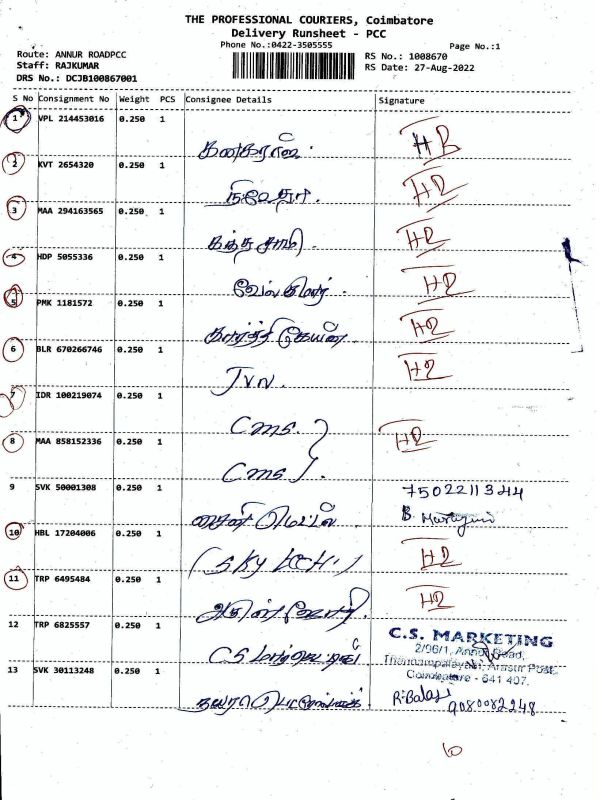 THE PROFESSIONAL COURIERS, Coimbatore
Delivery Runsheet - PCC
Phone No.:0422-3505555
Page No.:1
Route: ANNUR ROADPCC
Staff: RAJKUMAR
DRS No.: DCJB100867001
RS No.: 1008670
RS Date: 27-Aug-2022
S No Consignment No Weight PCS Consignee Details Signature
1 VPL 214453016 0.250 1
கனகராஜ். HR
2 KVT 2654320 0.250 1
நிவேதா. HR
3 MAA 294163565 0.250 1
கந்தசாமி. HR
4 HDP 5055336 0.250 1
வேல்குமார். HR
5 PMK 1181572 0.250 1
கார்த்திகேயன் HR
6 BLR 670266746 0.250 1 HR
JVN.
7 IDR 100219074 0.250 1
CMS.
8 MAA 858152336 0.250 1 HR
CMS
9 SVK 50001308 0.250 1 7502211344
சைன் மெட்டல் B.
10 HBL 17204006 0.250 1 HR
(SKY
11 TRP 6495484 0.250 1 HR
12 TRP 6825557 0.250 1
CS மார்கெட்டிங்
C.S. MARKETING
2/96/1, Annur Road,
Arasur Post,
Coimbatore - 641 407.
13 SVK 30113248 0.250 1
R. Balaji
9080082248
6